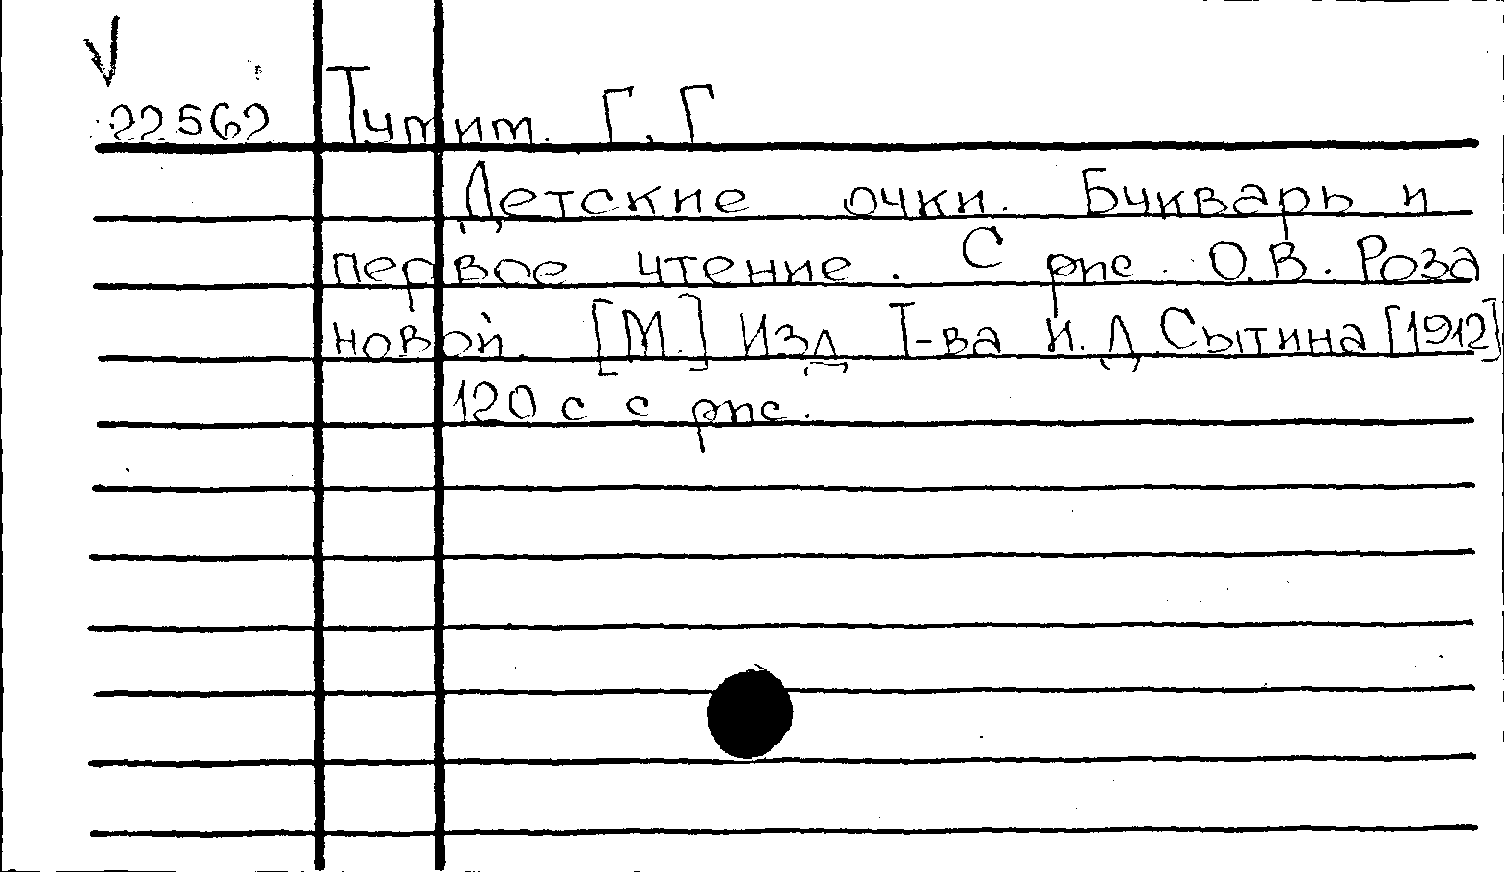 22562 Тумим. Г. Г
Детские очки. Букварь и
первое чтение. С рис. О.В. Роза
новой [М.] Изд Т-ва И. Д Сытина [1912]
120 с с рис.